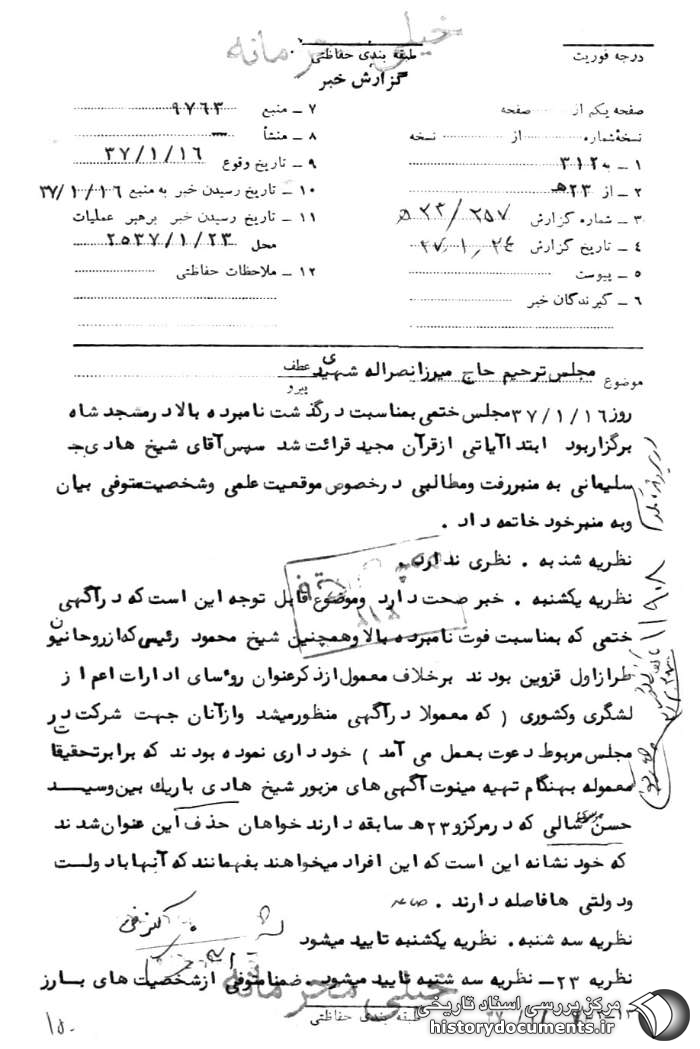 خیلی محرمانه
درجه فوریت
طبقه بندی حفاظتی
گزارش خبر
صفحه یکم از صفحه
نسخهٔ شماره از نسخه
۱ ــ به ۳۱۲
۲ ــ از ۲۳ﻫ
۳ ــ شماره گزارش ۲۵۷/ ۲۳ﻫ
۴ ــ تاریخ گزارش ۳۷٫۱٫۲۴
۵ ــ پیوست
۶ ــ گیرندگان خبر
۷ ــ منبع ۹۷۶۳
۸ ــ منشأ
۹ ــ تاریخ وقوع ۳۷/۱/۱۶
۱۰ ــ تاریخ رسیدن خبر به منبع ۳۷/۱/۱۶
۱۱ ــ تاریخ رسیدن خبر برهبر عملیات
محل ۲۵۳۷/۱/۲۳
۱۲ ــ ملاحظات حفاظتی
موضوع مجلس ترحیم حاج میرزانصراله شهیدی عطف
پیرو
روز ۳۷/۱/۱۶ مجلس ختمی بمناسبت درگذشت نامبرده بالا درمسجد شاه
برگزاربود ابتدا آیاتی ازقرآن مجید قرائت شد سپس آقای شیخ هادی
سلیمانی به منبررفت ومطالبی درخصوص موقعیت علمی وشخصیت متوفی بیان
وبه منبرخود خاتمه داد .
نظریه شنبه . نظری ندارد .
نظریه یکشنبه . خبر صحت دارد وموضوع قابل توجه این است که درآگهی
ختمی که بمناسبت فوت نامبرده بالا وهمچنین شیخ محمود رئیسی که ازروحانیون
طرازاول قزوین بودند برخلاف معمول ازذکرعنوان روسای ادارات اعم از
لشگری وکشوری ( که معمولا درآگهی منظورمیشد وازآنان جهت شرکت در
مجلس مربوط دعوت بعمل می آمد ) خودداری نموده بودند که برابرتحقیقات
معموله بهنگام تهیه مینوت آگهی های مزبور شیخ هادی باریک بین وسید
حسن موسوی شالی که درمرکزو ۲۳ﻫ سابقه دارند خواهان حذف این عنوان شدند
که خود نشانه این است که این افراد میخواهند بفهمانند که آنها با دولت
ودولتی ها فاصله دارند .
نظریه سه شنبه . نظریه یکشنبه تایید میشود
نظریه ۲۳ــ نظریه سه شنبه تایید میشود . ضمنا متوفی ازشخصیت های بارز
خیلی محرمانه
طبقه بندی حفاظتی
۱۱۹۰۸
۱۵۰
مرکز بررسی اسناد تاریخی
historydocuments.ir